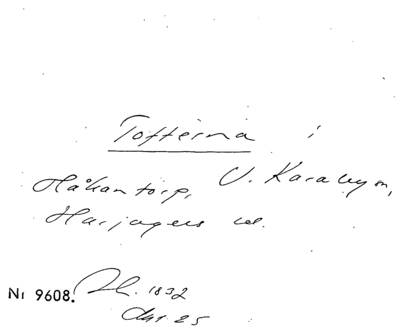 Tofterna i
Håkantorp, V. Karaby sn,
Harjagers hd.
Nr 9608. 1832